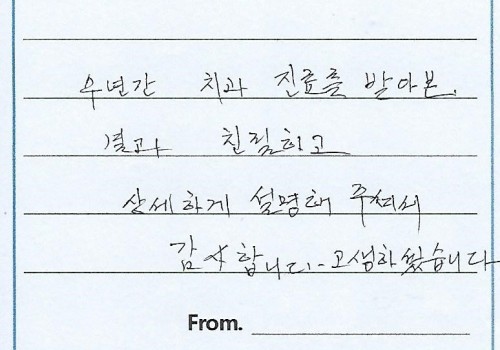 우년간 치과 진료를 받아본.
결과 친절하고
상세하게 설명해 주셔서
감사합니다- 고생하셨습니다
From.